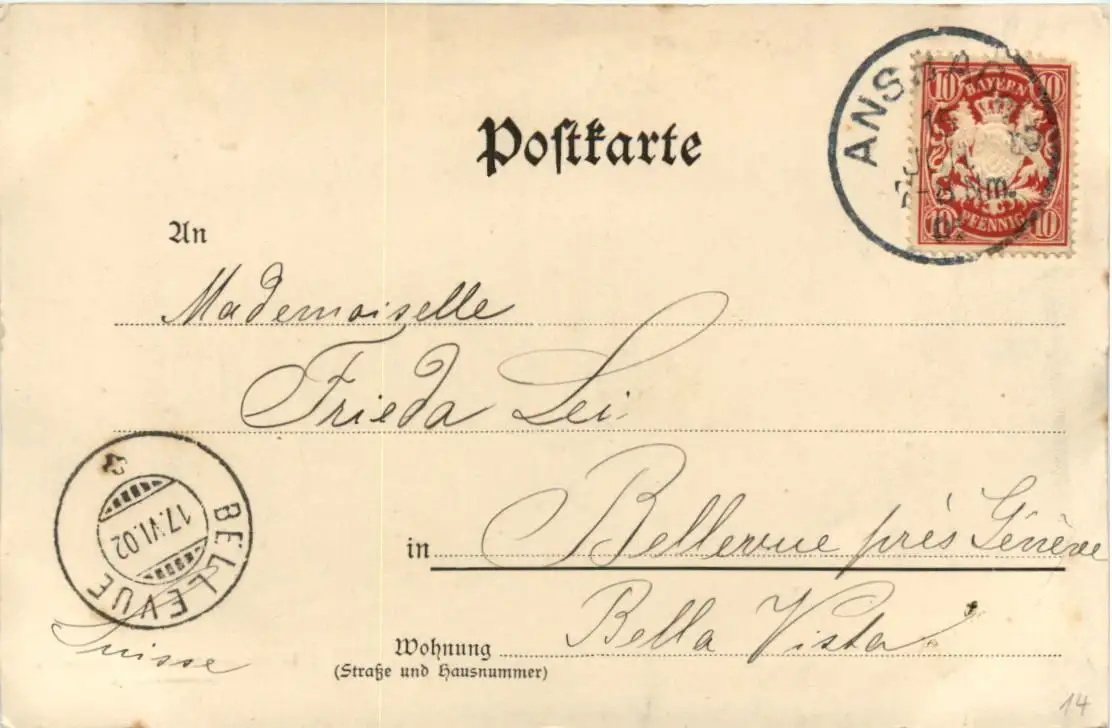 Postkarte
10 BAYERN 10
10 PFENNIG 10
An
Mademoiselle
Frieda Lei
in Bellevue près Génève
Wohnung Bella Vista
(Straße und Hausnummer)
BELLEVUE
17.VI.02
Suisse
14